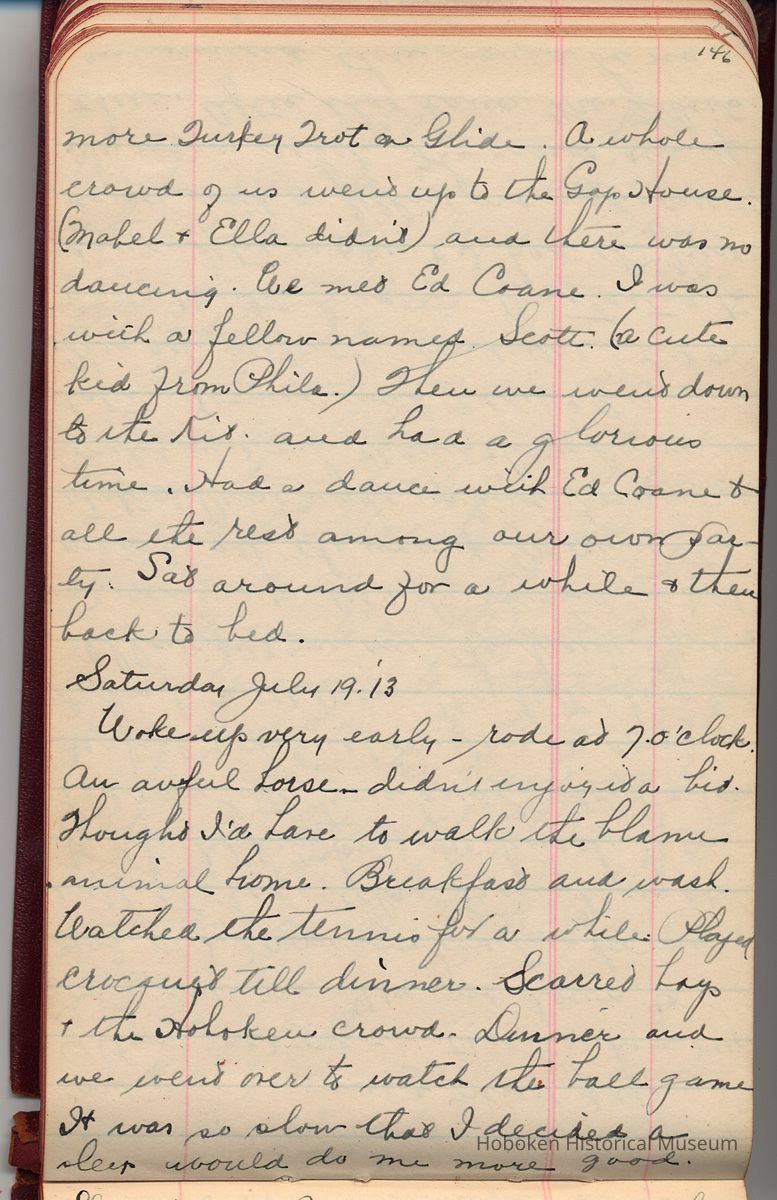 146
more Turkey Trot or Glide. A whole
crowd of us went up to the Gap House.
(Mabel & Ella didn't) and there was no
dancing. We met Ed Coane. I was
with a fellow named Scott. (a cute
kid from Phila.) Then we went down
to the Kit. and had a glorious
time. Had a dance with Ed Coane &
all the rest among our own par-
ty. Sat around for a while & then
back to bed.
Saturday July 19.'13
Woke up very early - rode at 7.o'clock.
An awful horse - didn't enjoy it a bit.
Thought I'd have to walk the blame
animal home. Breakfast and wash.
Watched the tennis for a while. Played
crocquet till dinner. Scarred boys
& the Hoboken crowd. Dinner and
we went over to watch the ball game
It was so slow that I decided a
sleep would do me more good.
Hoboken Historical Museum